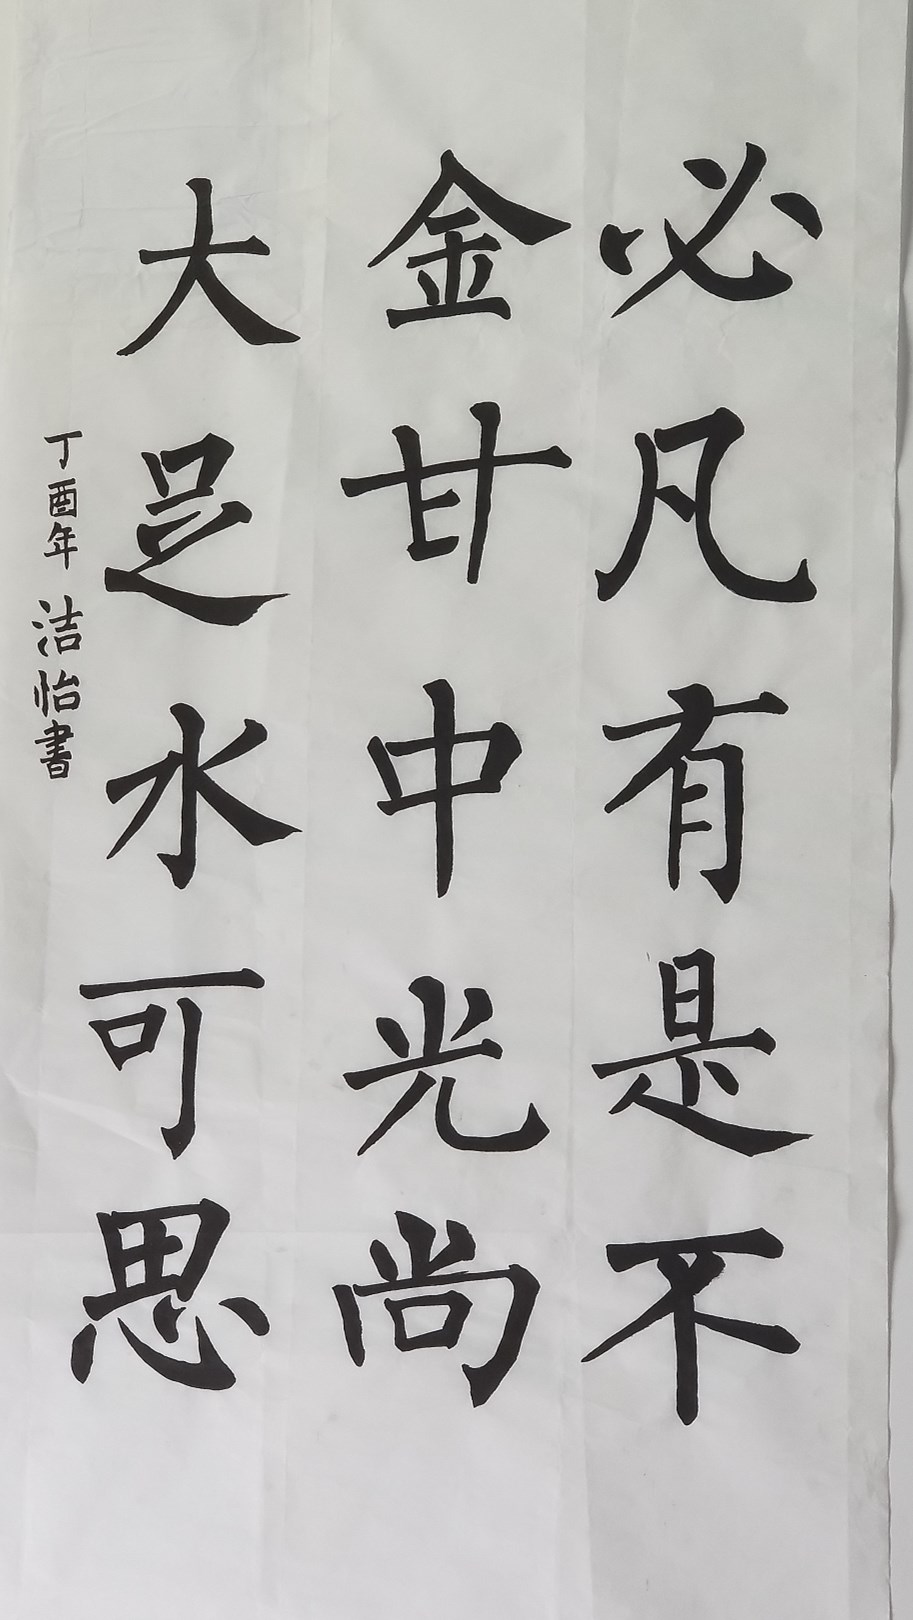 必凡有是不
金甘中光尚
大足水可思
丁酉年 洁怡書